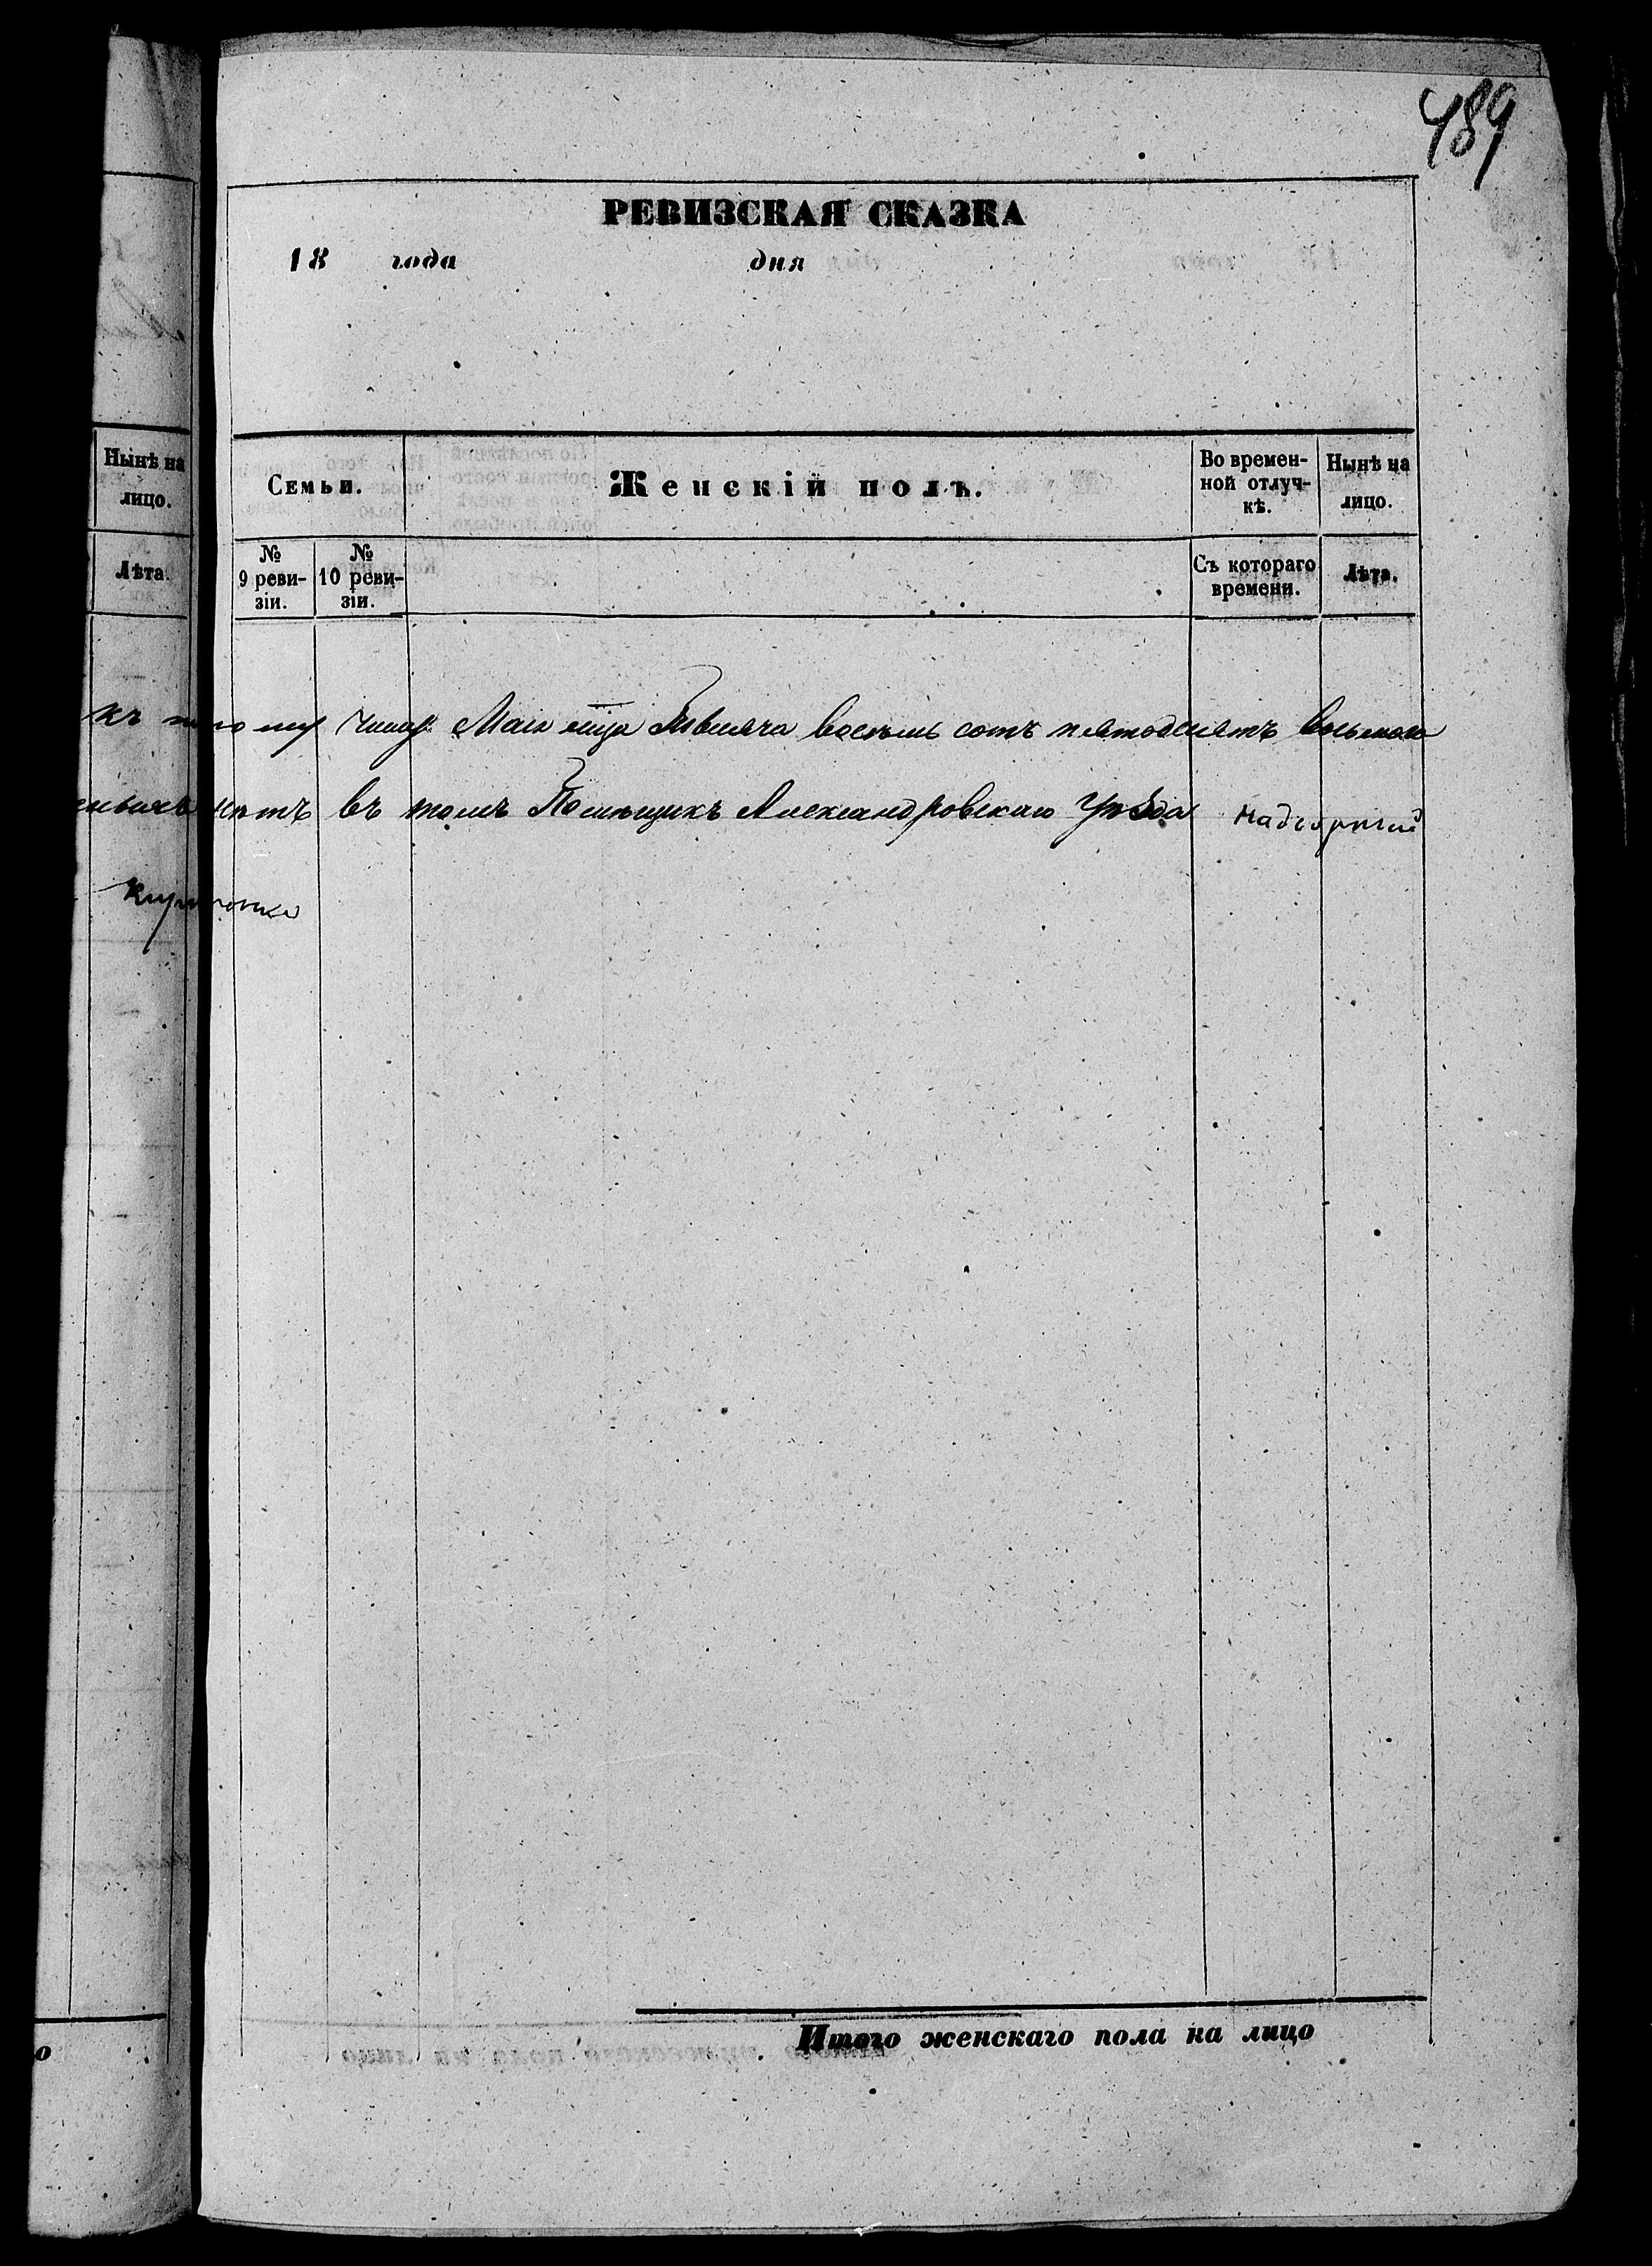 489
РЕВИЗСКАЯ СКАЗКА
18 года дня
Нынѣ на
лицо.
Лѣта.
Семьи.
Женскій полъ.
Во времен-
ной отлуч-
кѣ.
Нынѣ на
лицо.
№
9 реви-
зіи.
№
10 реви-
зіи.
Съ котораго
времени.
Лѣта.
къ числу Маія мца тысяча восемь сотъ пятьдесятъ восьмого
нѣтъ въ томъ Помѣщикъ Александровскаго Уѣзда Надворный
Итого женскаго пола на лицо